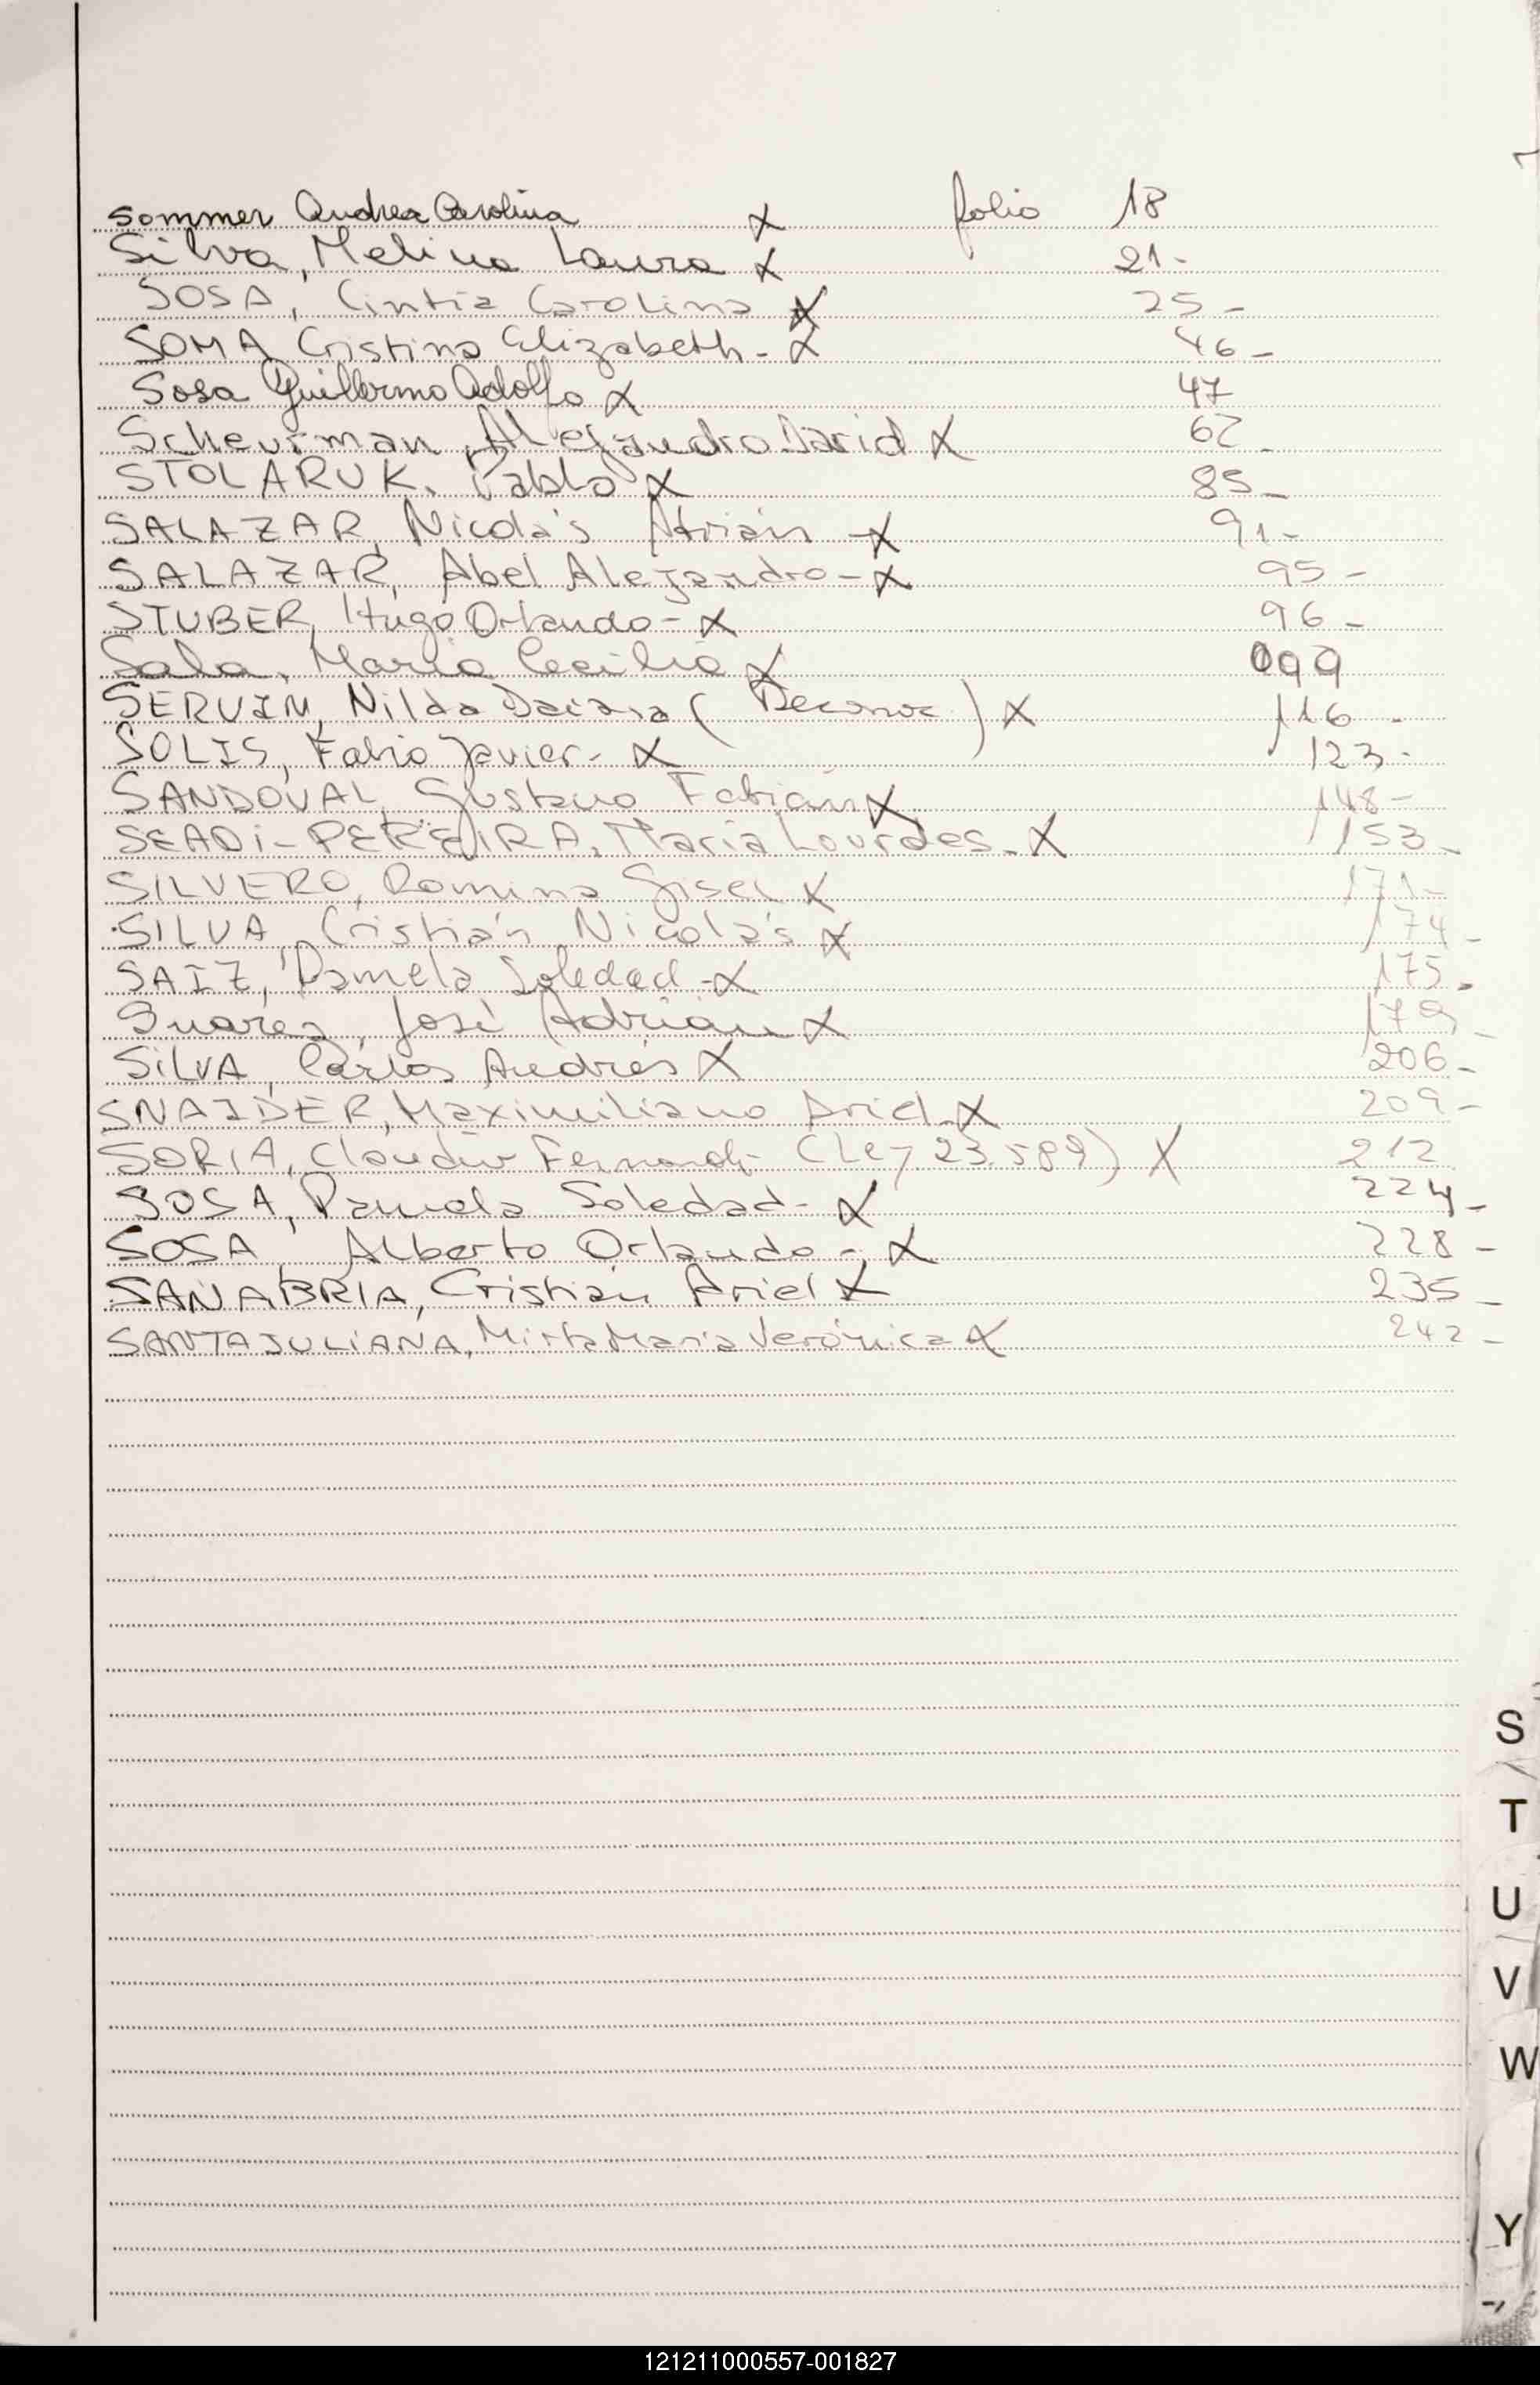 Sommer Andrea Carolina X folio 18
Silva, Melina Laura X 21-
SOSA, Cintia Carolina X 25-
SOMA Cristina Elizabeth- X 46-
Sosa Guillermo Adolfo X 47
Scheurman, Alejandro David X 62-
STOLARUK, Pablo X 85-
SALAZAR, Nicolás Adrián -X 91-
SALAZAR, Abel Alejandro-X 95-
STUBER, Hugo Orlando- X 96-
Sala, María Cecilia X 099
SERVIN, Nilda Daiana ( ) X 116-
SOLIS, Fabio Javier- X 123-
SANDOVAL, Gustavo Fabián X 148-
SEADI-PEREIRA, María Lourdes- X 153-
SILVERO, Romina Gisel X 171-
SILVA, Cristián Nicolás X 174-
SAIZ, Pamela Soledad-X 175-
Suárez, José Adrián X 179-
SILVA, Carlos Andrés X 206-
SNAIDER, Maximiliano Ariel-X 209-
SORIA, Claudio Fernando (Ley 23.589) X 212
SOSA, Pamela Soledad- X 224-
SOSA, Alberto Orlando- X 228-
SANABRIA, Cristián Ariel X 235-
SANTAJULIANA, Mirta María Verónica X 242-
S
T
U
V
W
Y
121211000557-001827